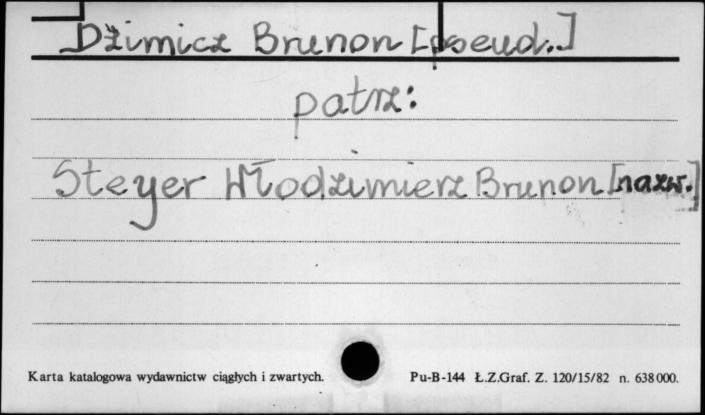 Dżimicz Brunon [pseud.]
patrz:
Steyer Włodzimierz Brunon [nazw.]
Karta katalogowa wydawnictw ciągłych i zwartych. Pu-B-144 Ł.Z.Graf. Z. 120/15/82 n. 638000.